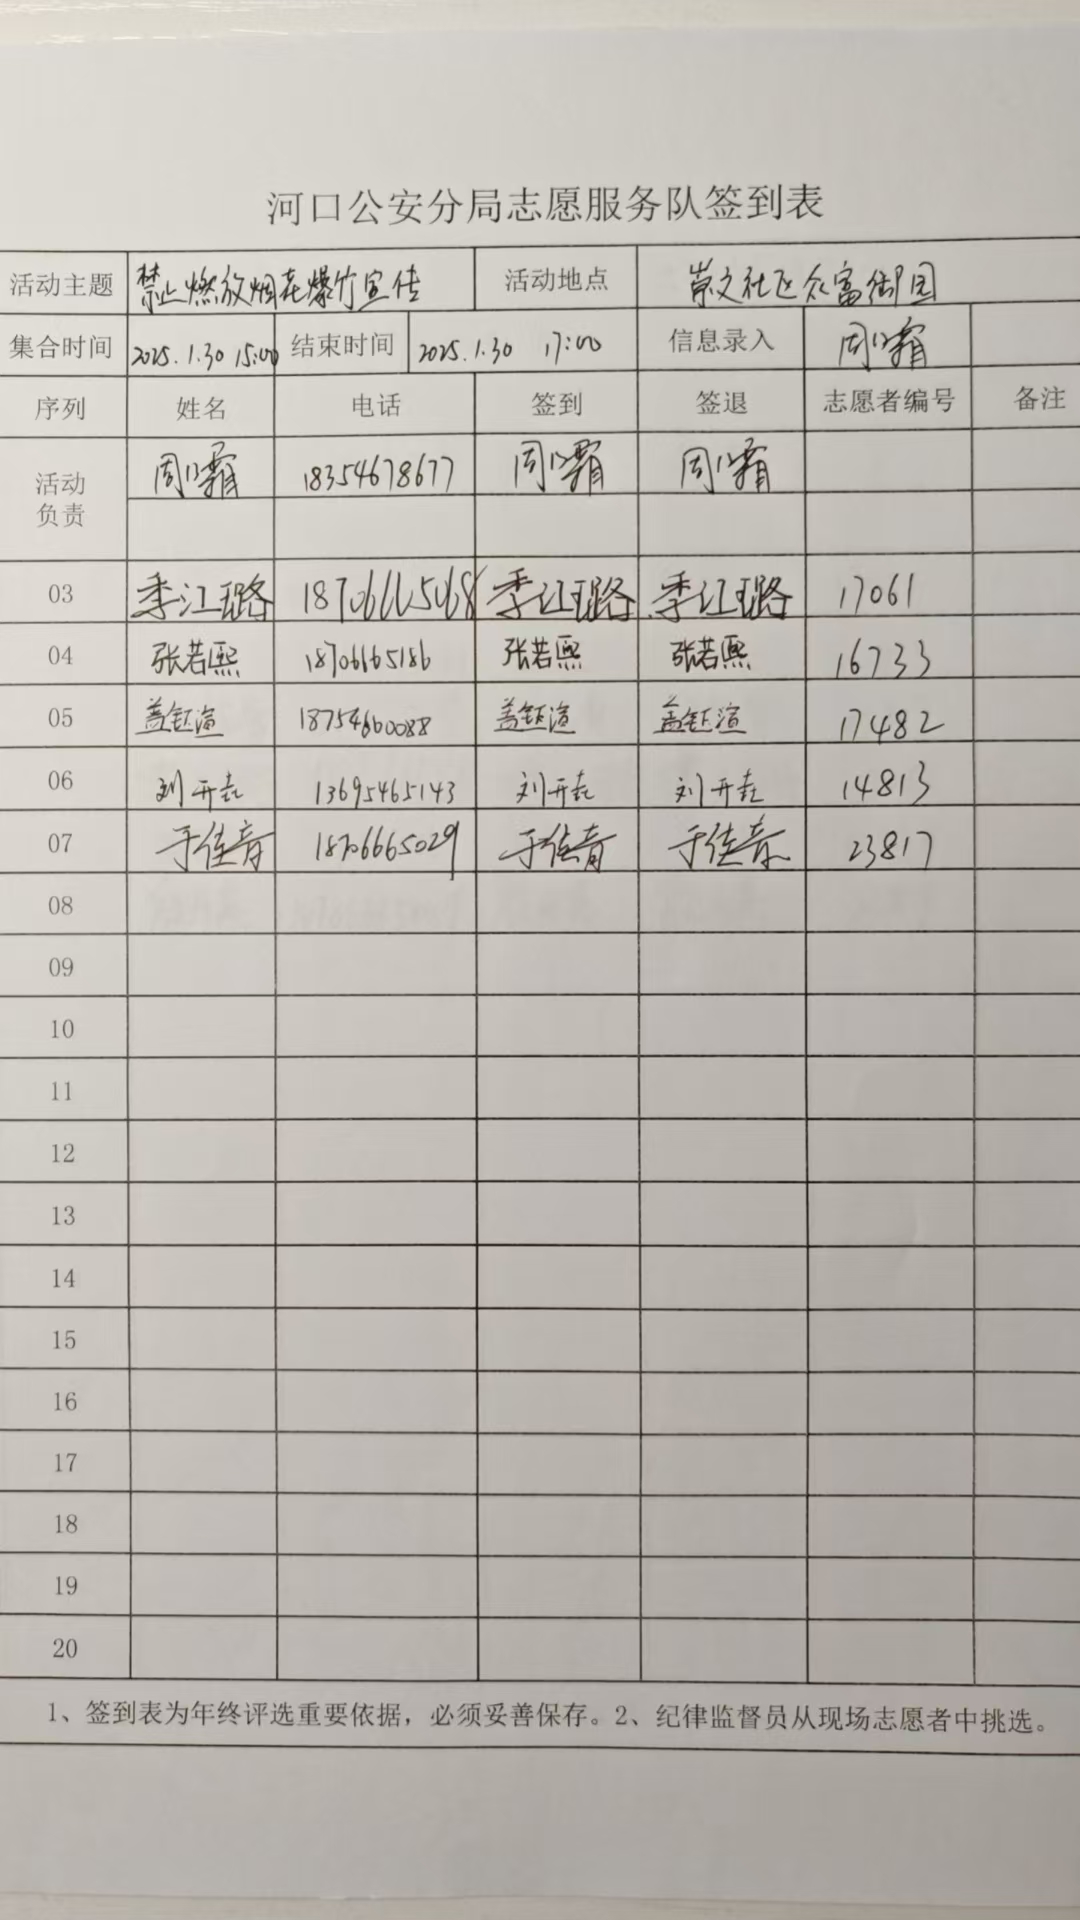 河口公安分局志愿服务队签到表
活动主题 禁止燃放烟花爆竹宣传 活动地点 崇文社区众富御园
集合时间 2025.1.30 15:00 结束时间 2025.1.30 17:00 信息录入 周霜
序列 姓名 电话 签到 签退 志愿者编号 备注
活动负责 周霜 18354678677 周霜 周霜
03 季江璐 18706665068 季江璐 季江璐 17061
04 张若熙 18706665186 张若熙 张若熙 16733
05 盖钰渲 18754600088 盖钰渲 盖钰渲 17482
06 刘开垚 13695465143 刘开垚 刘开垚 14813
07 于佳音 18706665029 于佳音 于佳音 23817
08
09
10
11
12
13
14
15
16
17
18
19
20
1、签到表为年终评选重要依据，必须妥善保存。2、纪律监督员从现场志愿者中挑选。